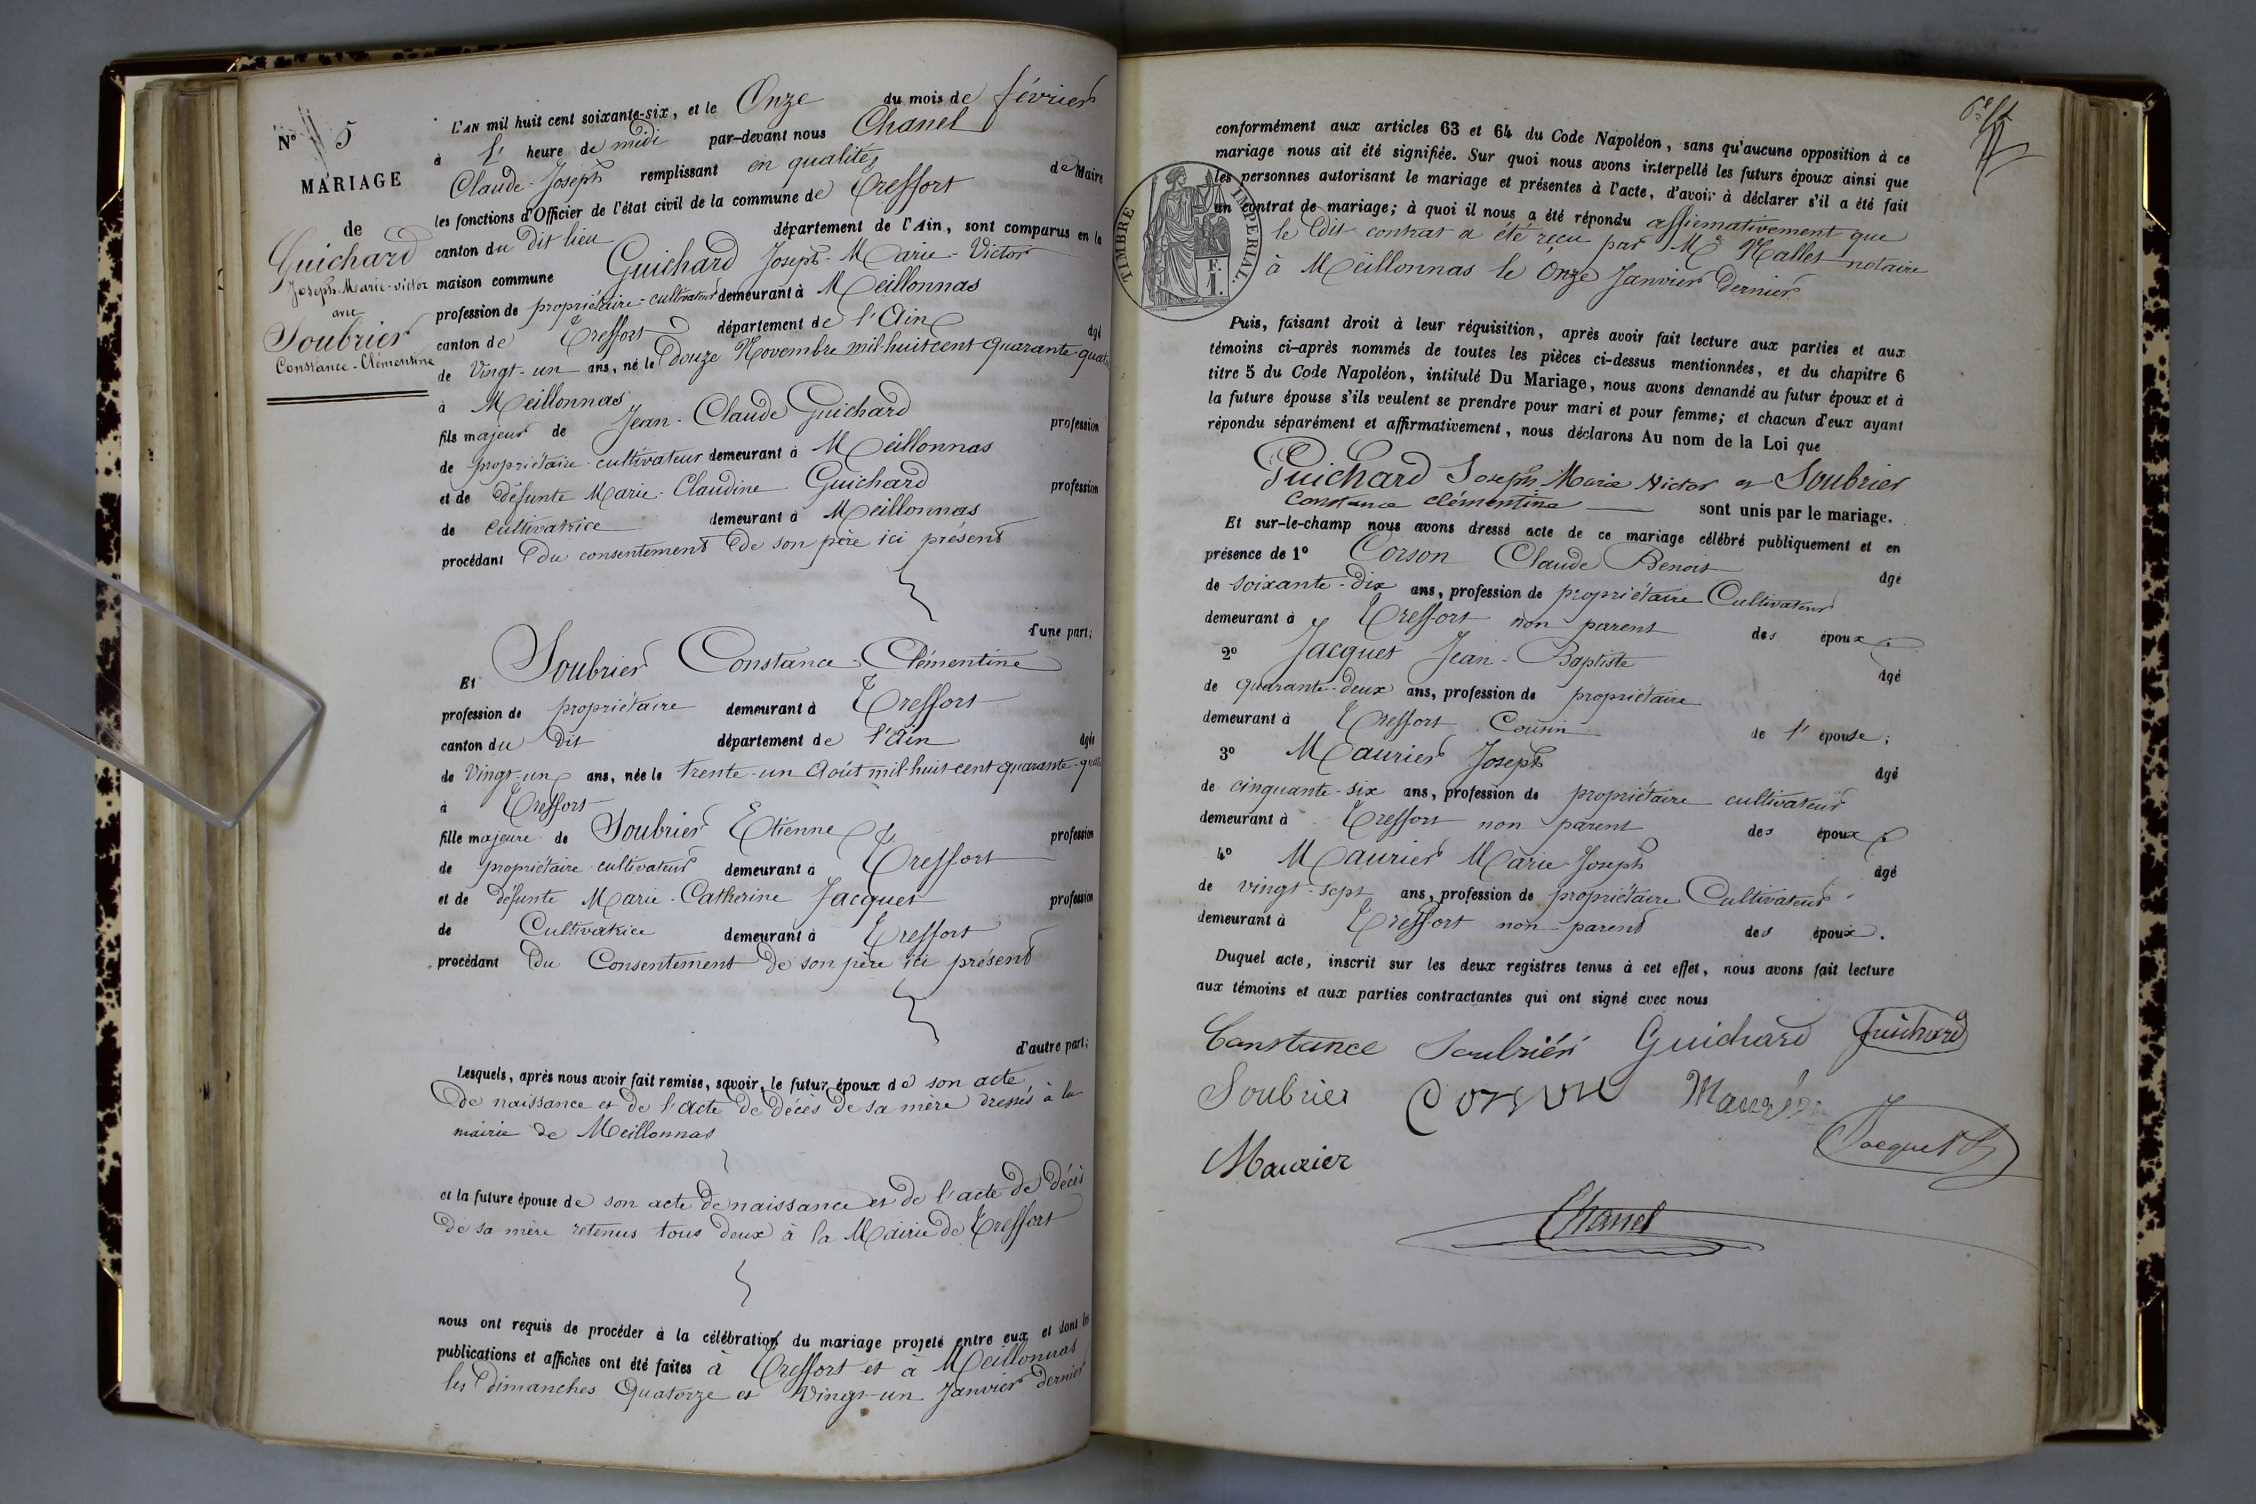 N° 5
MARIAGE
de
Guichard
Joseph-Marie-victor
avec
Soubrier
Constance-Clémentine
L'AN mil huit cent soixante-six, et le Onze du mois de février
à l' heure de midi par-devant nous Chanel
Claude-Joseph remplissant en qualité de Maire
les fonctions d'Officier de l'état civil de la commune de Treffort
canton du dit lieu département de l'Ain, sont comparus en la
maison commune Guichard Joseph-Marie-Victor
profession de propriétaire-cultivateur demeurant à Meillonnas
canton de Treffort département de l'Ain âgé
de Vingt-un ans, né le douze Novembre mil-huit cent quarante-quatre
à Meillonnas
fils majeur de Jean-Claude Guichard profession
de propriétaire-cultivateur demeurant à Meillonnas
et de défunte Marie-Claudine Guichard profession
de Cultivatrice demeurant à Meillonnas
procédant du consentement de son père ici présent
d'une part;
Et Soubrier Constance Clémentine
profession de propriétaire demeurant à Treffort
canton du dit département de l'Ain âgée
de Vingt-un ans, née le trente-un Août mil-huit-cent quarante-quatre
à Treffort
fille majeure de Soubrier Etienne profession
de propriétaire-cultivateur demeurant à Treffort
et de défunte Marie-Catherine Jacquet profession
de Cultivatrice demeurant à Treffort
procédant du Consentement de son père ici présent
d'autre part;
Lesquels, après nous avoir fait remise, savoir, le futur époux de son acte
de naissance et de l'acte de décès de sa mère dressés à la
mairie de Meillonnas
et la future épouse de son acte de naissance et de l'acte de décès
de sa mère retenus tous deux à la Mairie de Treffort
nous ont requis de procéder à la célébration du mariage projeté entre eux et dont les
publications et affiches ont été faites à Treffort et à Meillonnas
les dimanches Quatorze et Vingt-un Janvier dernier
conformément aux articles 63 et 64 du Code Napoléon, sans qu'aucune opposition à ce
mariage nous ait été signifiée. Sur quoi nous avons interpellé les futurs époux ainsi que
les personnes autorisant le mariage et présentes à l'acte, d'avoir à déclarer s'il a été fait
un contrat de mariage; à quoi il nous a été répondu affirmativement que
le dit contrat a été reçu par Me Nallet notaire
à Meillonnas le Onze Janvier dernier
TIMBRE IMPERIAL
Puis, faisant droit à leur réquisition, après avoir fait lecture aux parties et aux
témoins ci-après nommés de toutes les pièces ci-dessus mentionnées, et du chapitre 6
titre 5 du Code Napoléon, intitulé Du Mariage, nous avons demandé au futur époux et à
la future épouse s'ils veulent se prendre pour mari et pour femme; et chacun d'eux ayant
répondu séparément et affirmativement, nous déclarons Au nom de la Loi que
Guichard Joseph Marie Victor et Soubrier
Constance clémentine sont unis par le mariage.
Et sur-le-champ nous avons dressé acte de ce mariage célébré publiquement et en
présence de 1° Corson Claude Benoit âgé
de soixante-dix ans, profession de propriétaire Cultivateur
demeurant à Treffort non parent des époux
2° Jacquet Jean-Baptiste âgé
de quarante-deux ans, profession de propriétaire
demeurant à Treffort Cousin de l' épouse;
3° Maurier Joseph âgé
de cinquante-six ans, profession de propriétaire cultivateur
demeurant à Treffort non parent des époux
4° Maurier Marie Joseph âgé
de vingt-sept ans, profession de propriétaire Cultivateur
demeurant à Treffort non parent des époux.
Duquel acte, inscrit sur les deux registres tenus à cet effet, nous avons fait lecture
aux témoins et aux parties contractantes qui ont signé avec nous
Constance Soubrier Guichard Guichard
Soubrier Corson Maurier
Jacquet
Maurier
Chanel